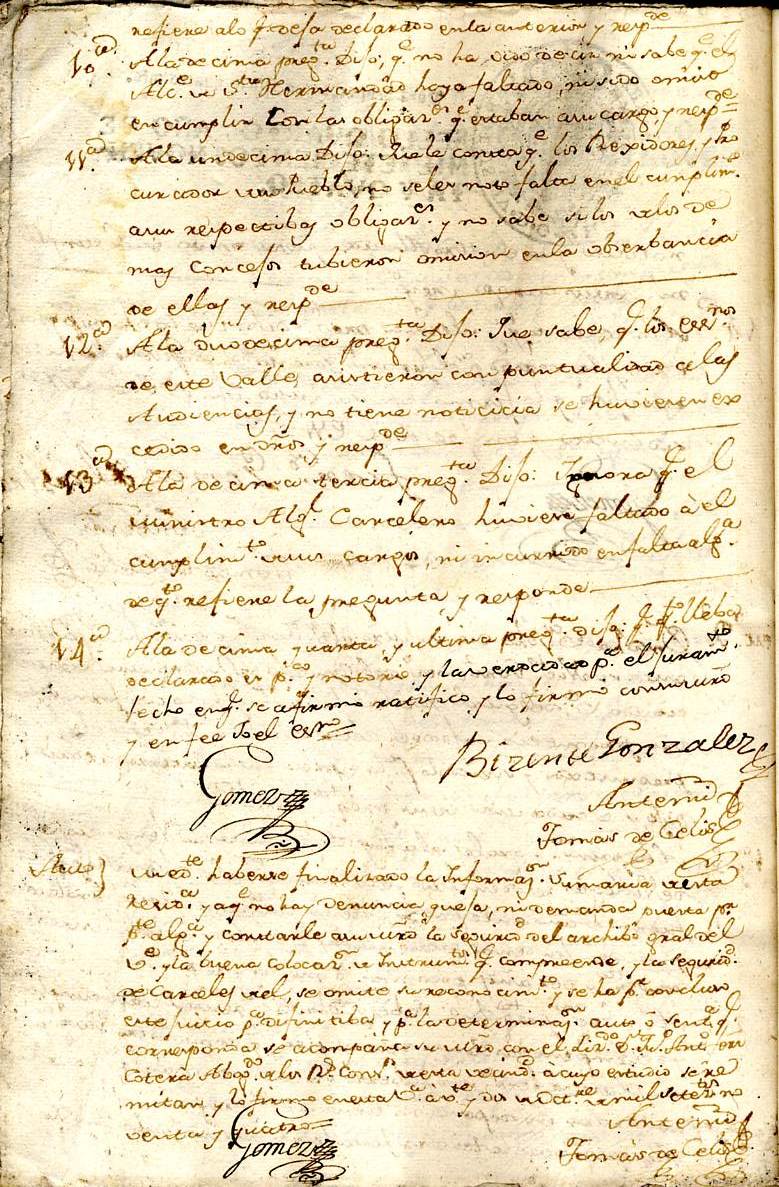 refiere a lo q.e deja declarado en la anterior y resp.de
10.a A la decima preg.ta Dijo, q.e no ha oido decir ni sabe q.e el
Alc.e de S.ta Hermandad haya faltado, ni sido omiso
en cumplir con las obligac.es q.e estaban a su cargo y resp.de
11.a A la undecima Dijo: Que le consta q.e los Rexidores, y Pro
curador de su Pueblo, no se les noto falta en el cumplim.to
de sus respectibas obligac.es y no sabe si los de los de
mas Concejos tubieron omision en la obserbancia
de ellas y resp.de
12.a A la duodecima preg.ta Dijo: Que sabe, q.e los ess.nos
de este Valle, asistieron con puntualidad a las
Audiencias, y no tiene noticicia se huviesen ex
cedido en dros, y resp.de
13.a A la decima tercia preg.ta Dijo: Ignora q.e el
Ministro Alg.l Carcelero huviese faltado à el
cumplim.to de sus cargos, ni incurrido en falta alg.a
de q.to refiere la pregunta, y responde
14.a A la decima quarta, y ultima preg.ta dijo: q.e q.to lleba
declarado es p.co y notorio, y la verdad so p.a el juram.to
fecho en q.e se afirmo ratifico, y lo firmo con su mrd
y en fee Yo el essno
Bizente Gonzalez
Gomez
Antemi
Tomas de Celis
Auto} haberse finalizado la Informaz.on Sumaria de esta
Resid.a y aq.e no hay denuncia, queja, ni demanda puesta p.r
p.te alg.a y constarle a su mrd la seguridad del archibo gral del
V.e y la buena colocaz.on de Instrum.tos q.e compreende, y la segurid.d
de Carceles del, se omite su reconocim.to y se ha p.r concluso
este juicio p.a difinitiba y p.a la determinaz.on auto ò sent.a q.e
corresponda se acompaña su mrd con el Lic.do D.n Ant.o
Cotera Abog.do de los R.s Cons.s de esta vecind.d a cuyo estudio se re
mitan y lo firmo en esta V.a à v.te y dos de Oct.re de mil setec.tos no
venta y quatro
Gomez
Antemi
Tomas de Celis